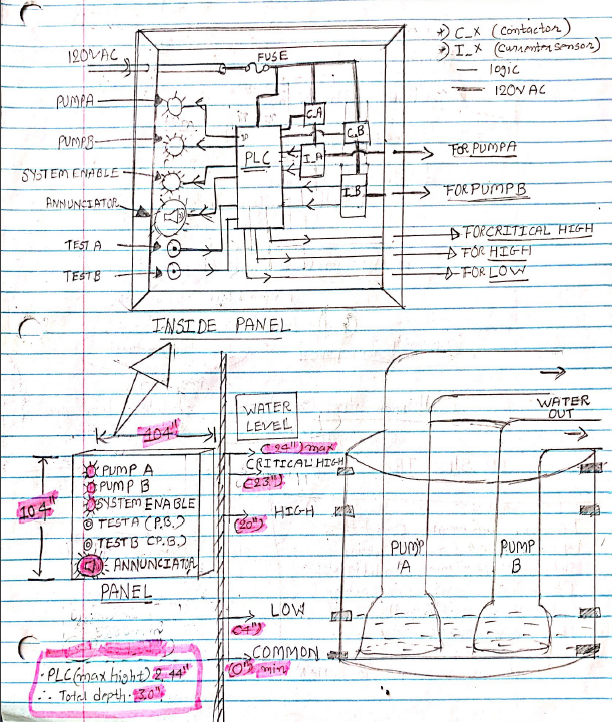 *) C_X (Contactor)
*) I_X (Current sensor)
— logic
120VAC
120VAC
FUSE
PUMPA
PUMPB
SYSTEM ENABLE
ANNUNCIATOR
TEST A
TEST B
PLC
C_A
C_B
I_A
I_B
FOR PUMP A
FOR PUMP B
FOR CRITICAL HIGH
FOR HIGH
FOR LOW
INSIDE PANEL
104"
104"
PUMP A
PUMP B
SYSTEM ENABLE
TESTA (P.B.)
TESTB (P.B.)
ANNUNCIATOR
PANEL
• PLC (max hight) 2.44"
∴ Total depth • 3.0"
WATER
LEVEL
(24") max
CRITICAL HIGH
(23")
HIGH
(20")
LOW
(4")
COMMON
(0") min
WATER
OUT
PUMP
A
PUMP
B